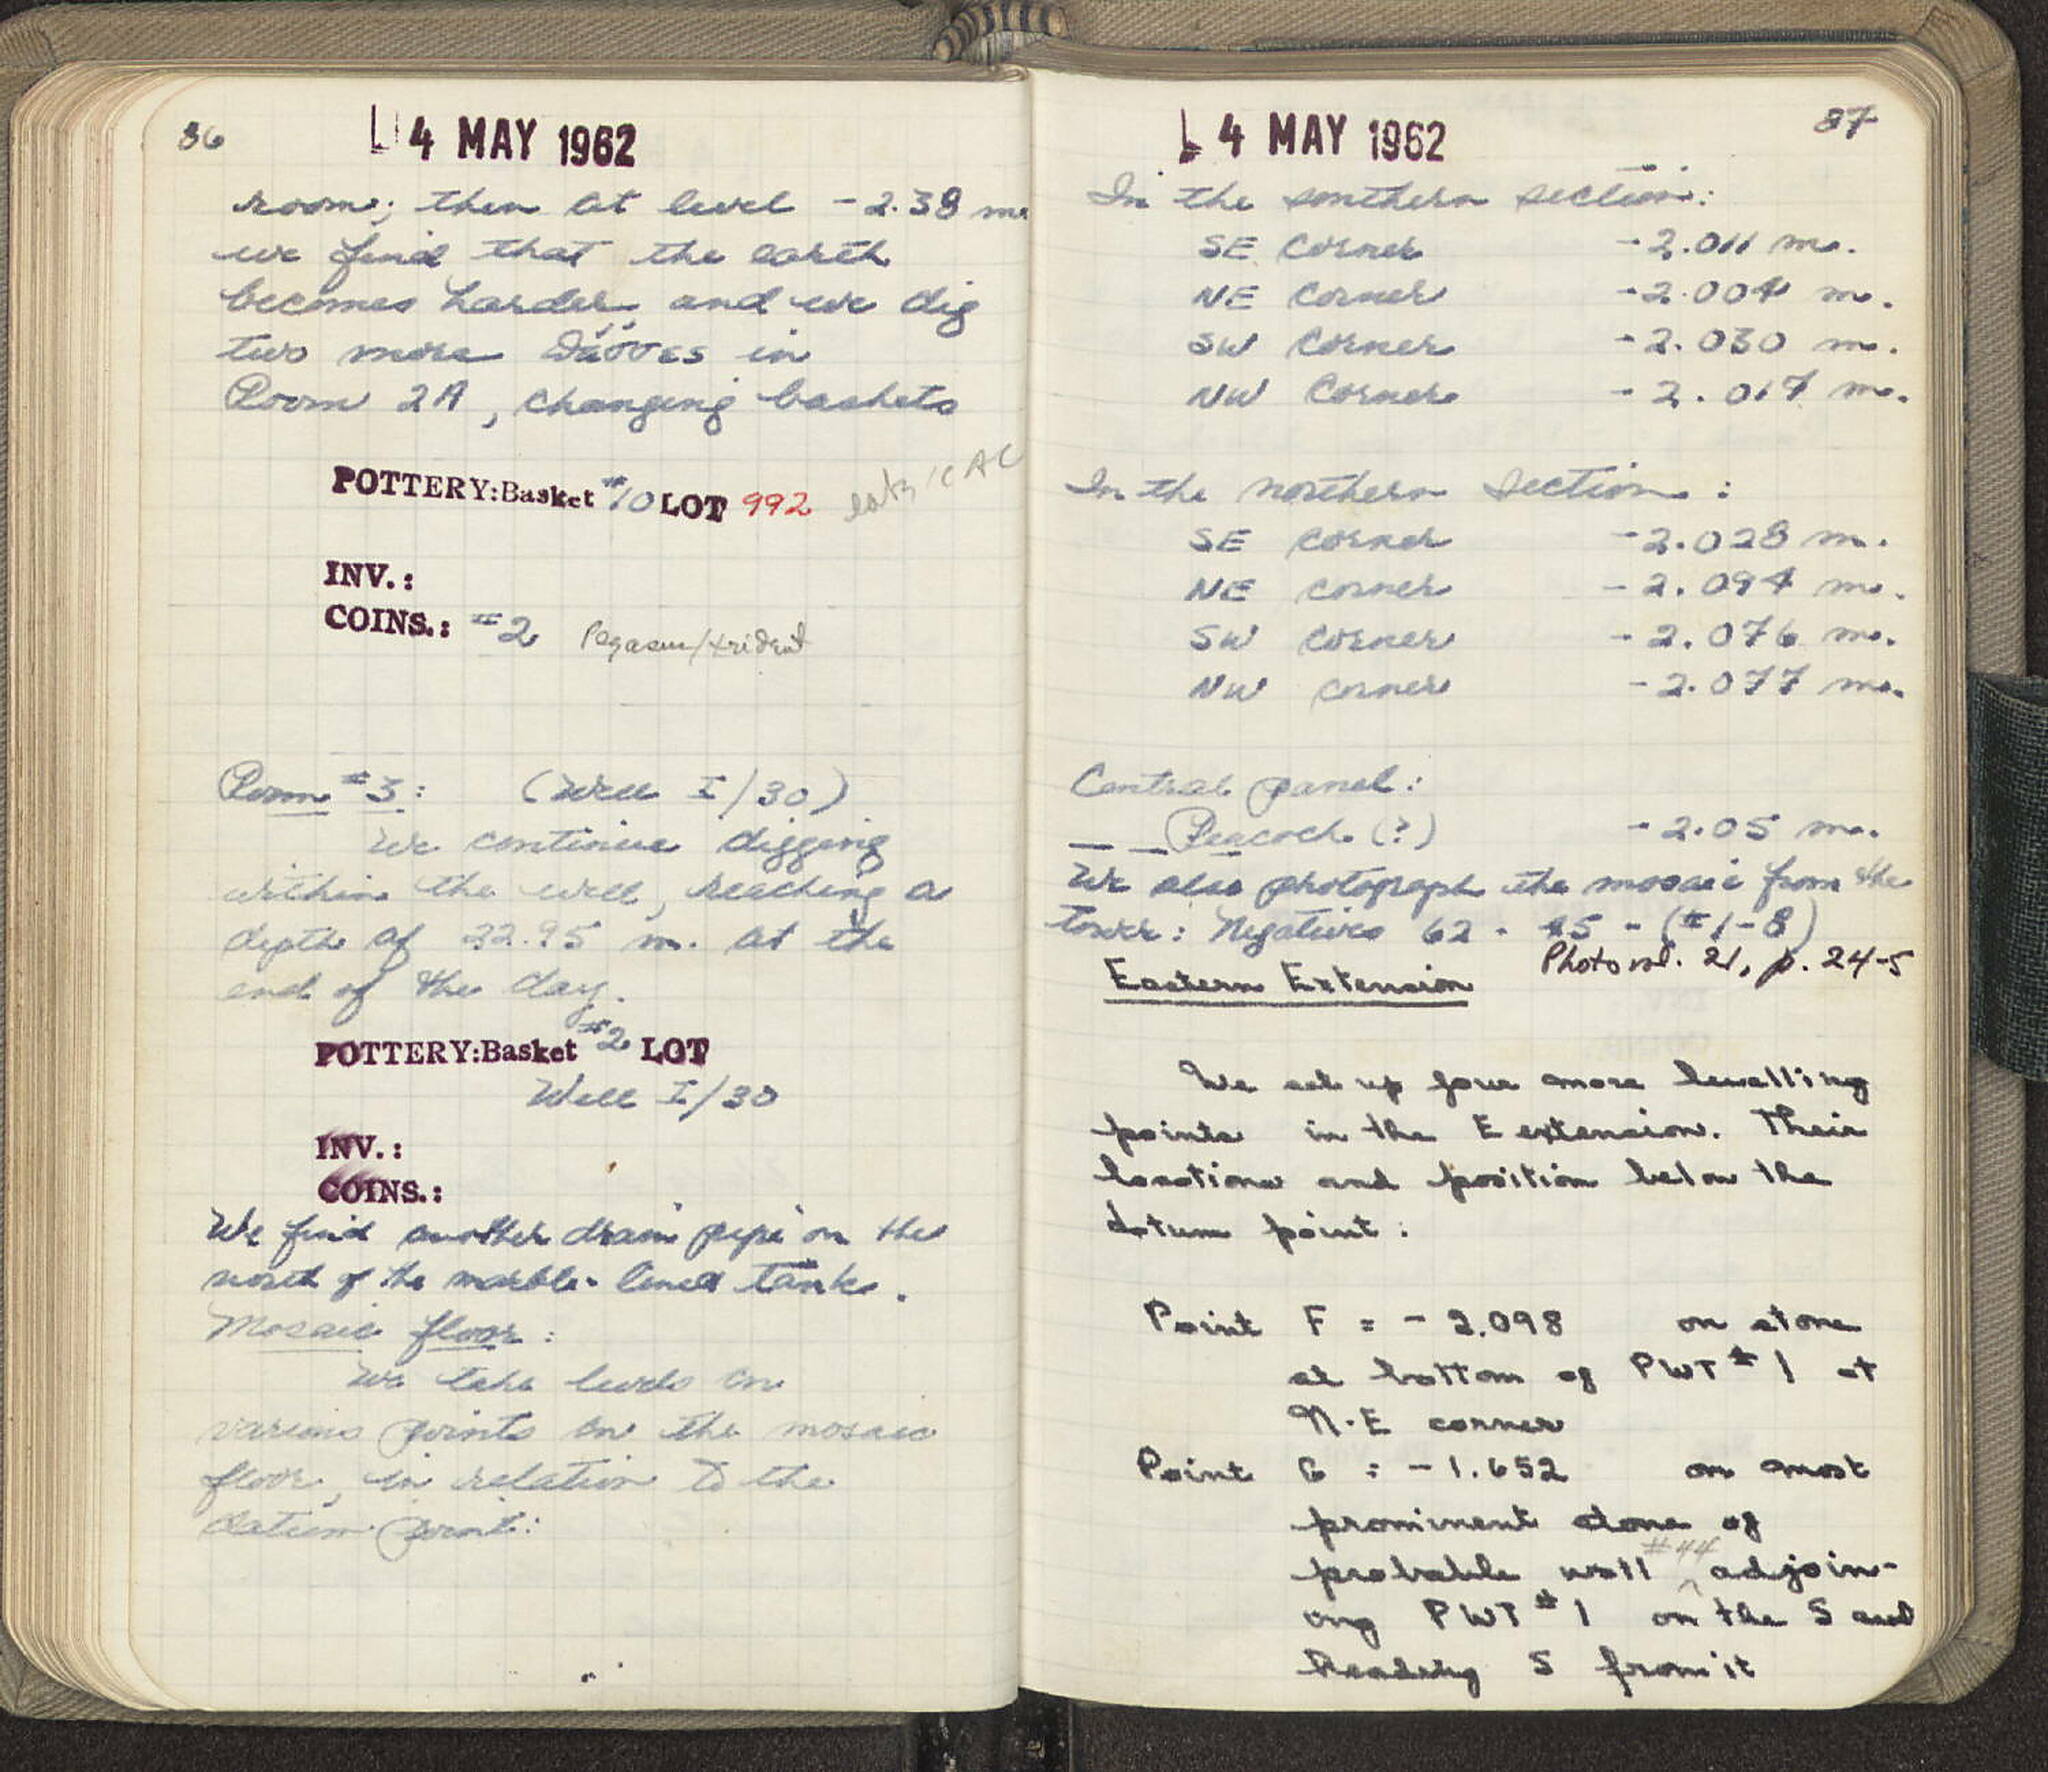 86
4 MAY 1962
room; then at level -2.38 m.
we find that the earth
becomes harder, and we dig
two more in
Room 2A, changing baskets
POTTERY:Basket #10 LOT 992
INV.:
COINS.: #2 Pegasus/trident
Room #3: (Well I/30)
We continue digging
within the well, reaching a
depth of 22.95 m. at the
end of the day.
POTTERY:Basket #2 LOT
Well I/30
INV.:
COINS.:
We find another drain pipe on the
north of the marble-lined tank.
Mosaic floor:
We take levels on
various points on the mosaic
floor, in relation to the
datum point:
87
4 MAY 1962
In the southern section:
SE corner -2.011 m.
NE corner -2.004 m.
SW corner -2.030 m.
NW corner -2.017 m.
In the northern section:
SE corner -2.028 m.
NE corner -2.094 m.
SW corner -2.076 m.
NW corner -2.077 m.
Central panel:
Peacock (?) -2.05 m.
We also photograph the mosaic from the
tower: Negatives 62 - - (#1-8)
Photo vol. 21, p. 24-5
Eastern Extension
We set up four more levelling
points in the E extension. Their
locations and position below the
datum point:
Point F = -2.098 on stone
at bottom of PWT #1 at
N.E corner
Point G = -1.652 on most
prominent stone of
probable wall #44 adjoin-
ing PWT #1 on the S and
heading S from it